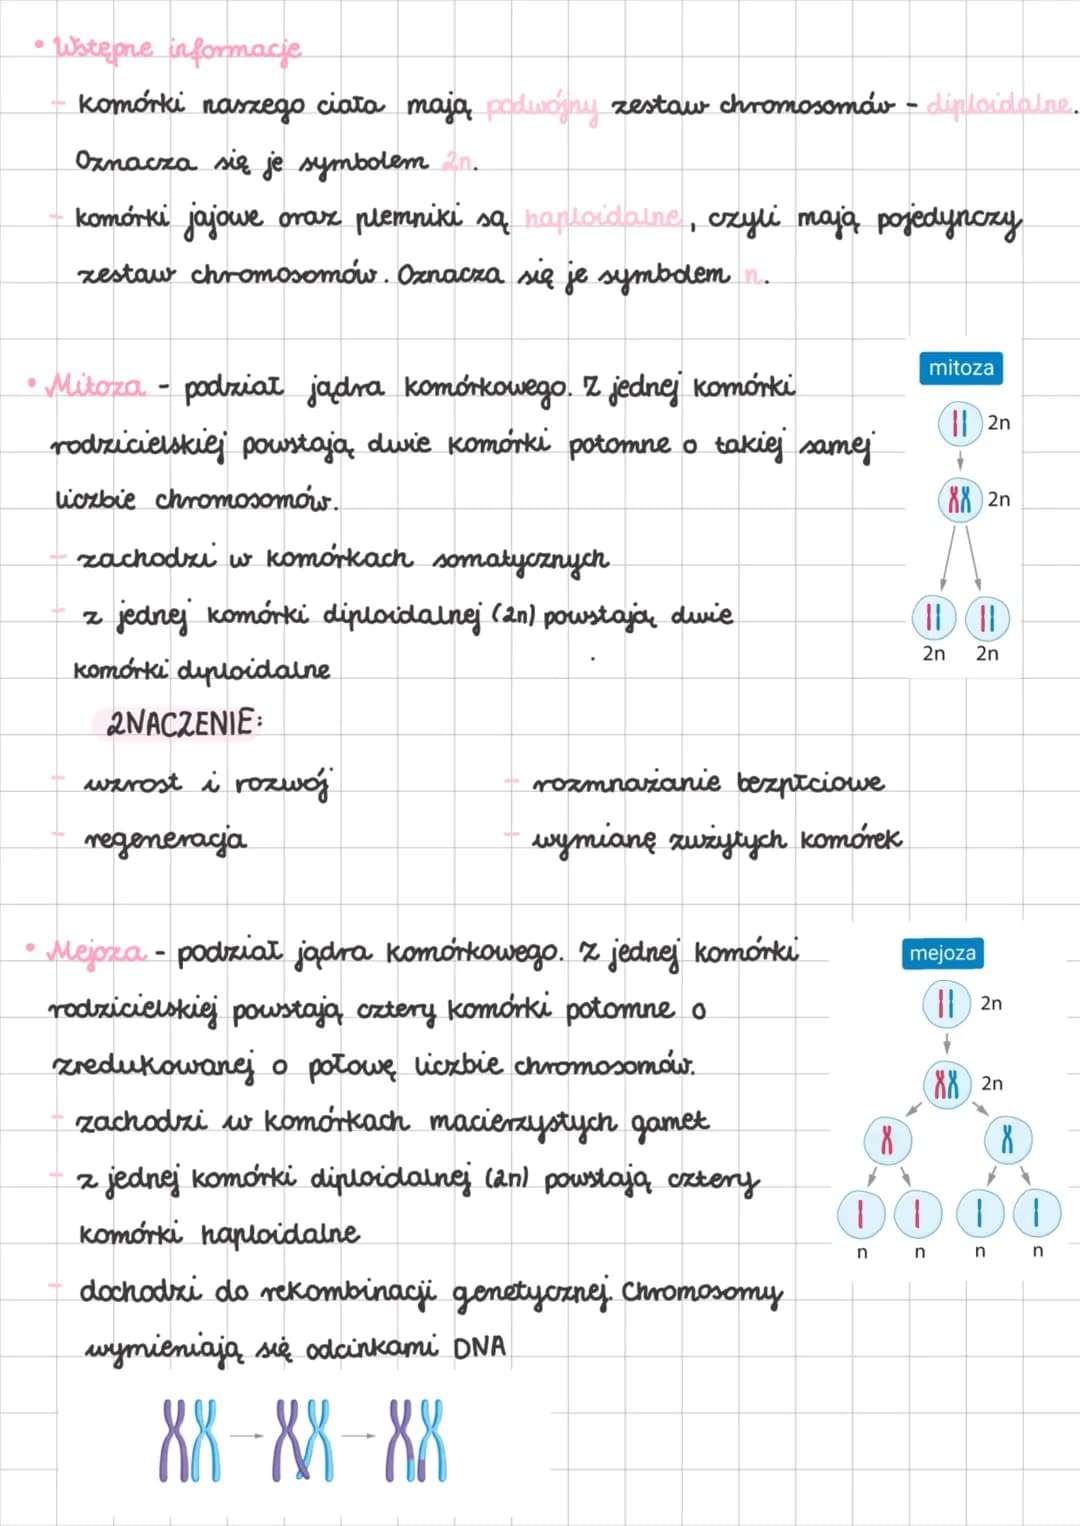 • Wstępne informacje
- komórki naszego ciała mają podwójny zestaw chromosomów - diploidalne.
Oznacza się je symbolem 2n.
- komórki jajowe oraz plemniki są haploidalne, czyli mają pojedynczy
zestaw chromosomów. Oznacza się je symbolem n.
• Mitoza - podział jądra komórkowego. Z jednej komórki
rodzicielskiej powstają dwie komórki potomne o takiej samej
liczbie chromosomów.
- zachodzi w komórkach somatycznych
- z jednej komórki diploidalnej (2n) powstają dwie
komórki dyploidalne
mitoza
2n
2n
2n 2n
ZNACZENIE:
- wzrost i rozwój
- regeneracja
- rozmnażanie bezpłciowe
- wymianę zużytych komórek
• Mejoza - podział jądra komórkowego. Z jednej komórki
rodzicielskiej powstają cztery komórki potomne o
zredukowanej o połowę liczbie chromosomów.
- zachodzi w komórkach macierzystych gamet
- z jednej komórki diploidalnej (2n) powstają cztery
komórki haploidalne
- dochodzi do rekombinacji genetycznej. Chromosomy
wymieniają się odcinkami DNA
mejoza
2n
2n
n n n n